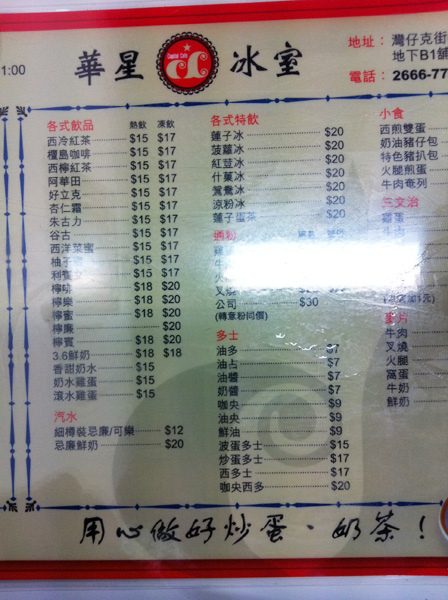 1:00
華星 Capital Cafe 冰室
地址：灣仔克街
地下B1舖
電話：2666-77
各式飲品 熱飲 凍飲
西冷紅茶 $15 $17
檀島咖啡 $15 $17
西檸紅茶 $15 $17
阿華田 $15 $17
好立克 $15 $17
杏仁霜 $15 $17
朱古力 $15 $17
谷古 $15 $17
西洋菜蜜 $15 $17
柚子 $15 $17
利賓 $15 $17
檸啡 $18 $20
檸樂 $18 $20
檸蜜 $18 $20
檸廉 $20
檸賓 $18 $20
3.6鮮奶 $18 $18
香甜奶水 $15
奶水雞蛋 $15
滾水雞蛋 $15
汽水
細樽裝忌廉/可樂 $12
忌廉鮮奶 $20
各式特飲
蓮子冰 $20
菠蘿冰 $20
紅荳冰 $20
什菓冰 $20
鴛鴦冰 $20
涼粉冰 $20
蓮子蛋茶 $20
通粉
叉燒
公司 $30
(轉意粉同價)
多士
油多 $7
油占 $7
油醬 $7
奶醬 $7
咖央 $9
油央 $9
鮮油 $9
波蛋多士 $15
炒蛋多士 $17
西多士 $17
咖央西多 $20
小食
西煎雙蛋
奶油豬仔包
特色豬扒包
火腿煎蛋
牛肉奄列
三文治
雞蛋
牛肉
麥片
牛肉
叉燒
火腿
窩蛋
牛奶
鮮奶
用心做好炒蛋、奶茶！